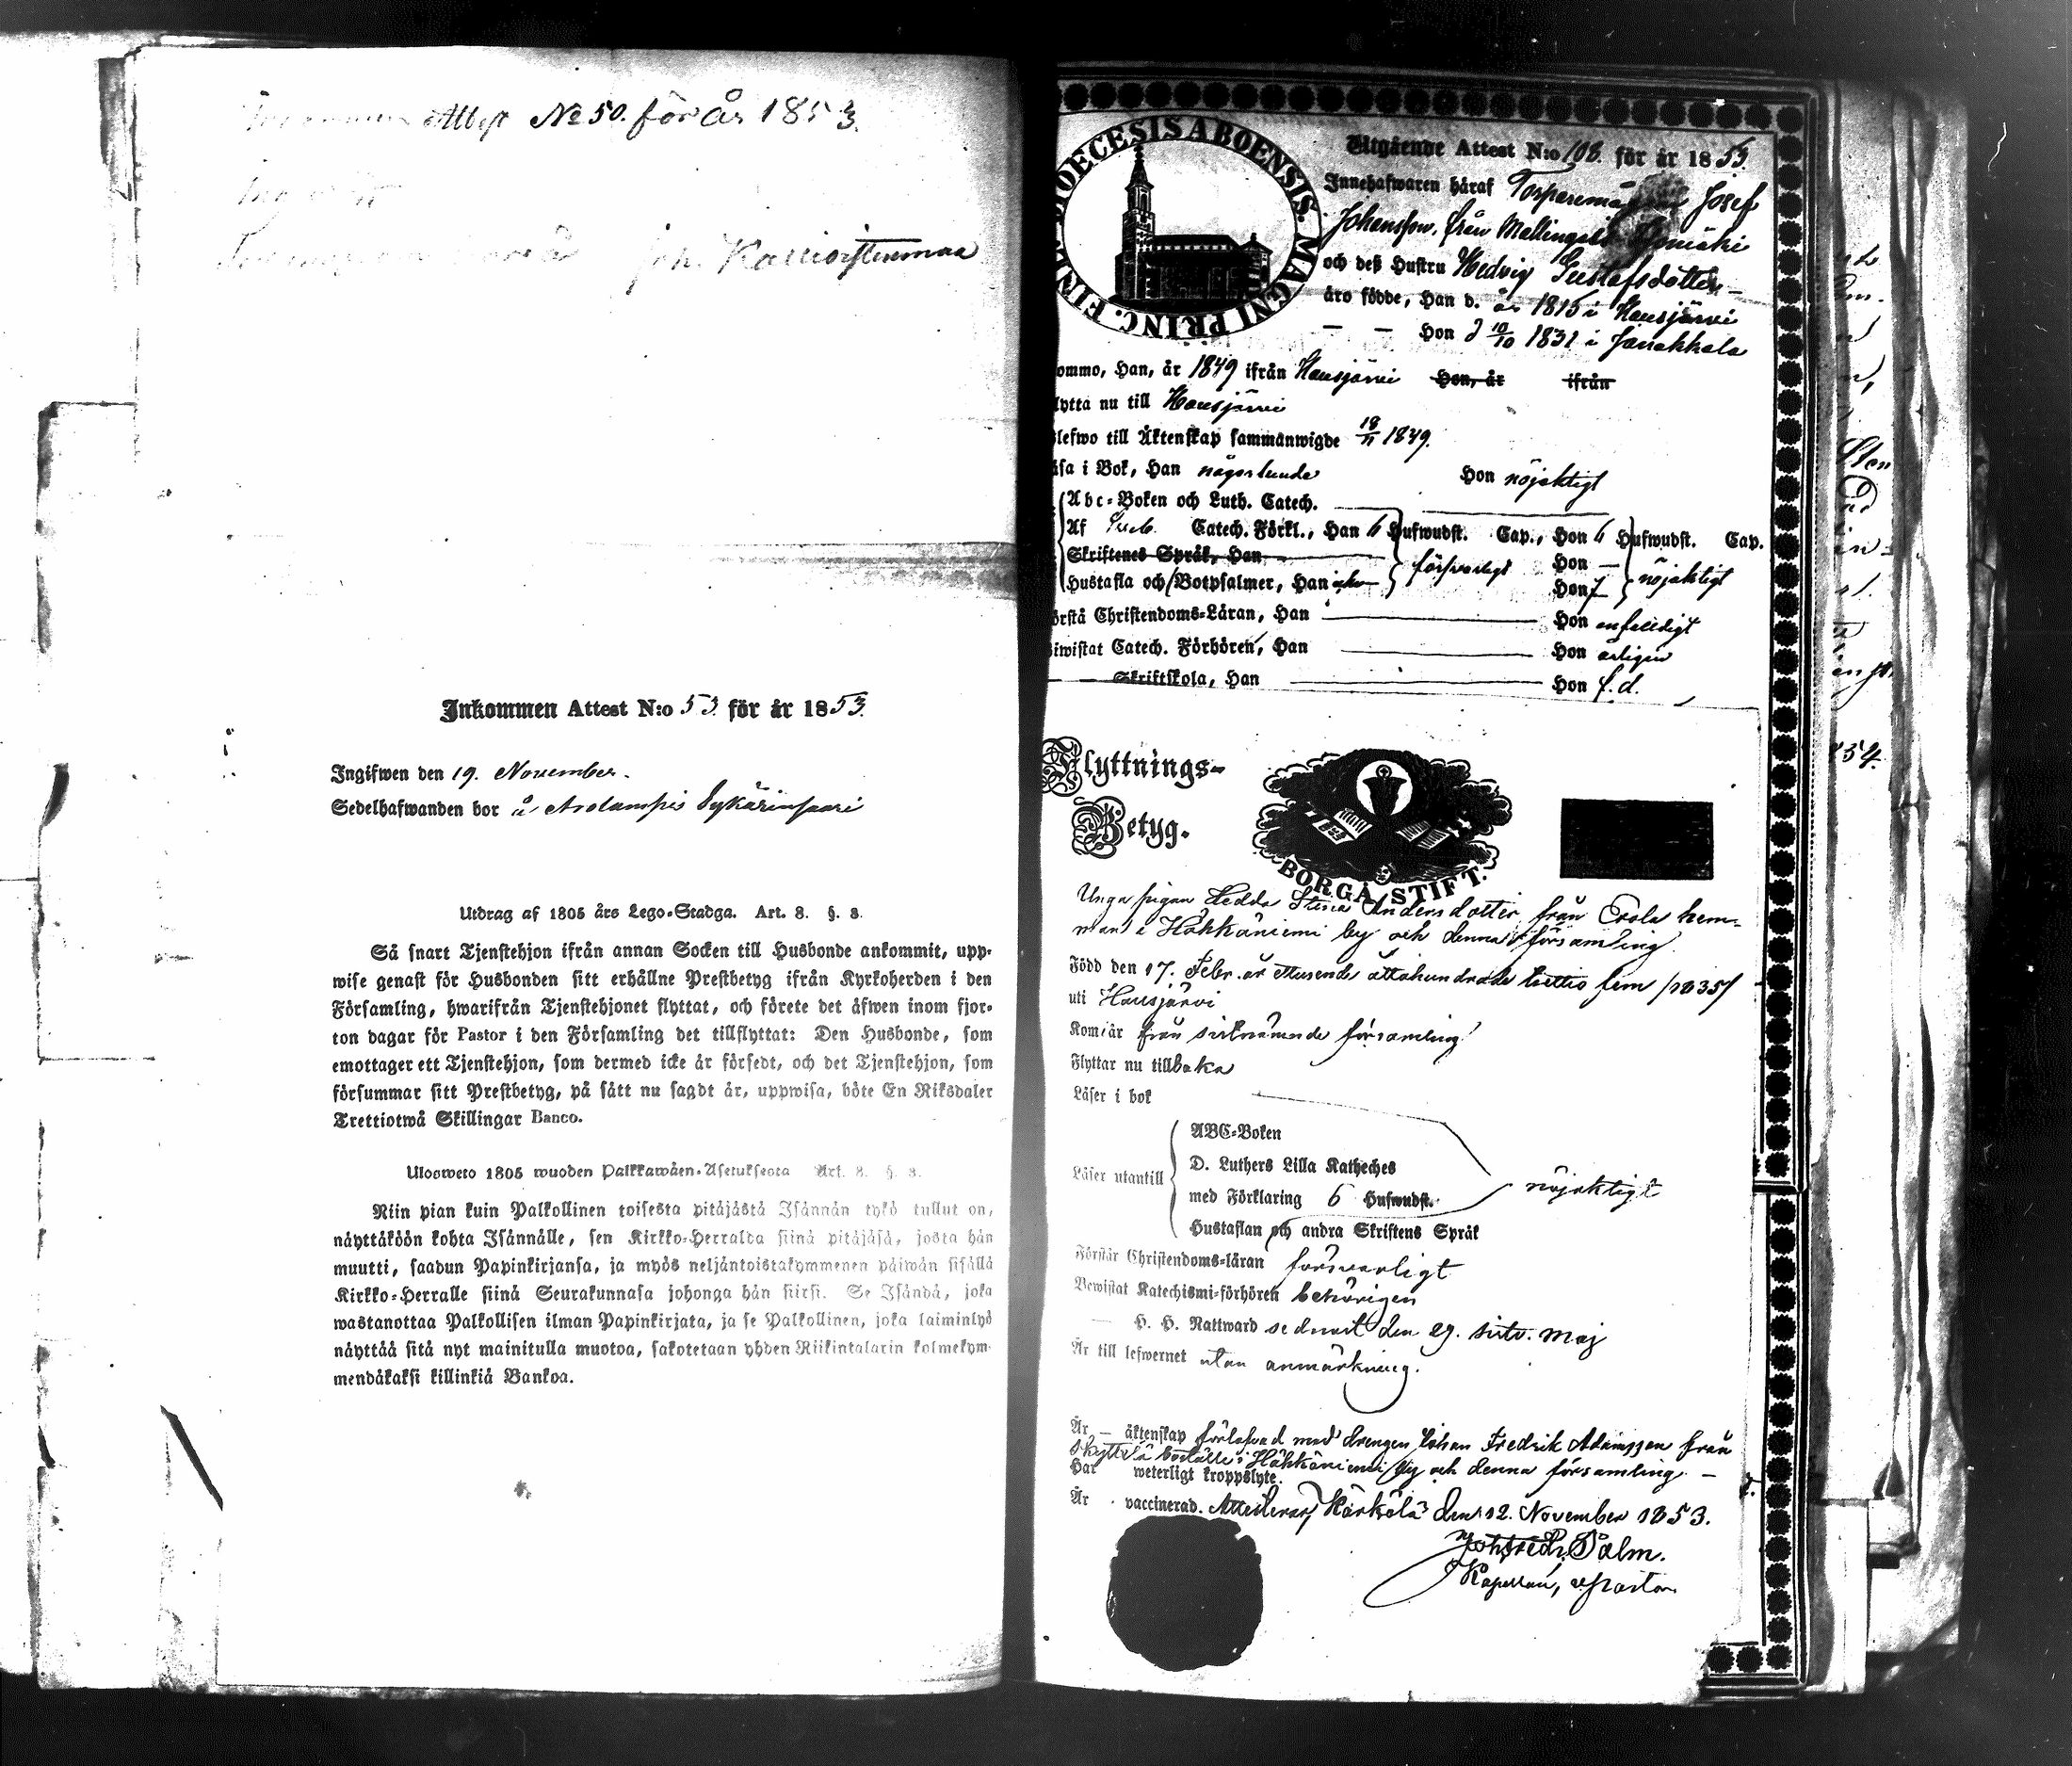 Attest No 50. för år 1853.
Joh. Kallioistenmaa
Inkommen Attest N:o 53. för år 1853.
Ingifwen den 19. November.
Sedelhafwanden bor å Arolampis Sykärinsaari
Utdrag af 1805 års Lego-Stadga. Art. 8. §. 8.
Så snart Tjenstehjon ifrån annan Socken till Husbonde ankommit, upp-
wise genast för Husbonden sitt erhållne Prestbetyg ifrån Kyrkoherden i den
Församling, hwarifrån Tjenstehjonet flyttat, och förete det äfwen inom fjor-
ton dagar för Pastor i den Församling det tillflyttat: Den Husbonde, som
emottager ett Tjenstehjon, som dermed icke är försedt, och det Tjenstehjon, som
försummar sitt Prestbetyg, på sätt nu sagdt är, uppwisa, böte En Riksdaler
Trettiotwå Skillingar Banco.
Ulosweto 1805 wuoden Palkkawäen-Asetuksesta Art. 8. §. 8.
Niin pian kuin Palkollinen toisesta pitäjästä Isännän tykö tullut on,
näyttäköön kohta Isännälle, sen Kirkko-Herralda siinä pitäjäsä, josta hän
muutti, saadun Papinkirjansa, ja myös neljäntoistakymmenen päiwän sisällä
Kirkko-Herralle siinä Seurakunnasa johonga hän siirsi. Se Isändä, joka
wastanottaa Palkollisen ilman Papinkirjata, ja se Palkollinen, joka laiminlyö
näyttää sitä nyt mainitulla muotoa, sakotetaan yhden Riikintalarin kolmekym-
mendäkaksi killinkiä Bankoa.
DIOECESIS ABOENSIS. MAGNI PRINC. FINL.
Utgående Attest N:o 108. för år 1853
Innehafwaren häraf Torparemågen Josef
Johansson, från Mallinges
och deß Hustru Hedvig Gustafsdotter
äro födde, Han d. år 1815 i Hausjärvi
— — Hon d 10/10 1831 i Janakkala
ommo, Han, år 1849 ifrån Hausjärvi Hon, år ifrån
lytta nu till Hausjärvi
lefwo till Äktenskap sammanwigde 18/11 1849.
äsa i Bok, Han någorlunda Hon nöjaktigt
Abc-Boken och Luth. Catech.
Af Sveb. Catech. Förkl., Han 6 Hufwudst. Cap., Hon 6 Hufwudst. Cap.
Skriftenes Språk, Han försvarligt Hon — nöjaktigt
Hustafla och Botpsalmer, Han Hon
örstå Christendoms-Läran, Han Hon enfaldigt
iwistat Catech. Förhören, Han Hon årligen
Skriftskola, Han Hon f. d.
Flyttnings-
Betyg.
BORGÅ STIFT.
Unga pigan Hedda Stina Andersdotter från Erola hem-
man i Hähkäniemi by och denna församling
Född den 17. Febr. år ettusende åttahundrade trettio fem /1835/
uti Hausjärvi
Kom i år från sistnämnde församling
Flyttar nu tillbaka
Läser i bok
ABC-Boken
D. Luthers Lilla Katheches
Läser utantill
med Förklaring 6 Hufwudst. nöjaktigt
Hustaflan och andra Skriftens Språk
Förstår Christendoms-läran försvarligt
Bewistat Katechismi-förhören behörigen
H. H. Nattward sednast den 29. sistv. Maj
Är till lefwernet utan anmärkning.
Är — äktenskap förlofvad med drengen Johan Fredrik Adamsson från
Skyttilä boställe i Hähkäniemi by och denna församling —
Har weterligt kroppslyte.
Är vaccinerad. Attesterar, Kärkölä den 12. November 1853.
Joh. Fredr. Palm.
Kapellan, v. Pastor